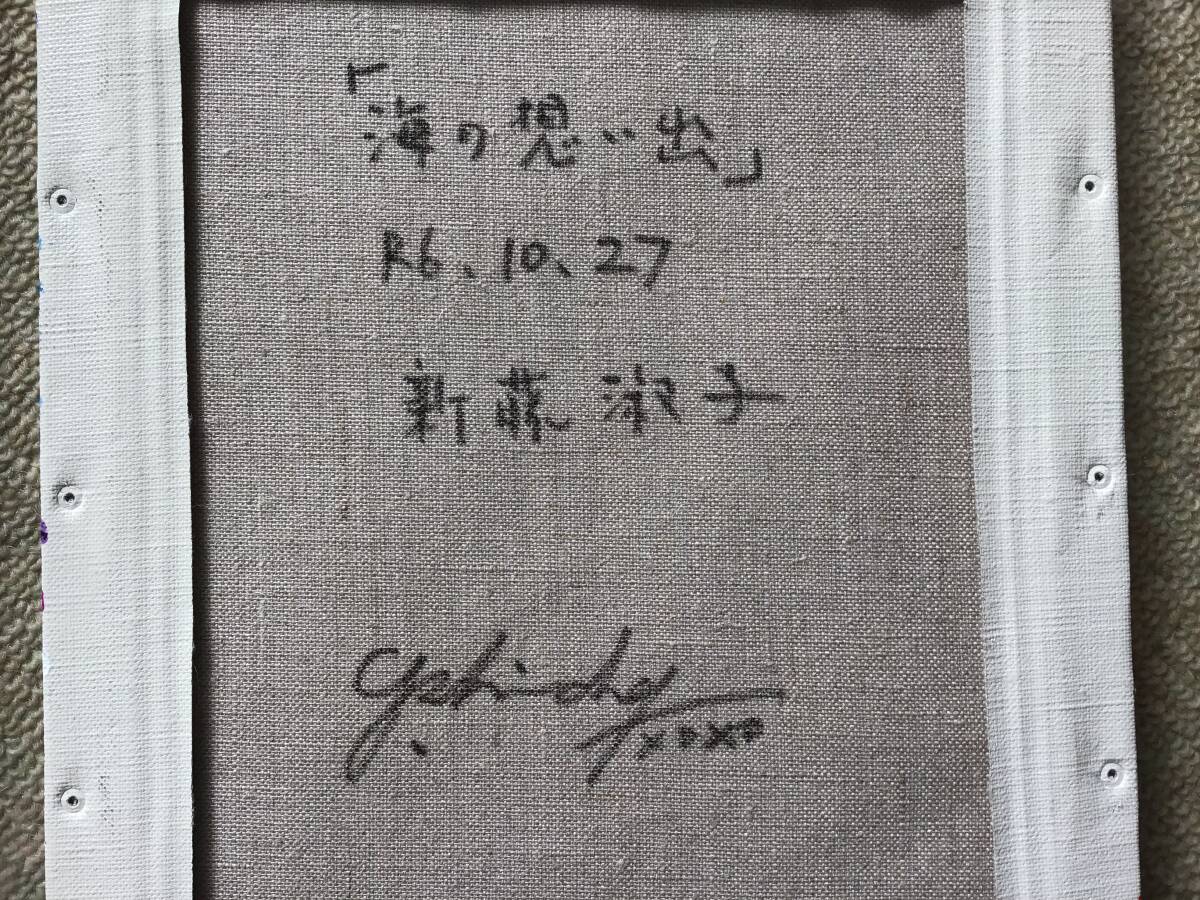 「海の想い出」
R6、10、27
新藤淑子
xoxo